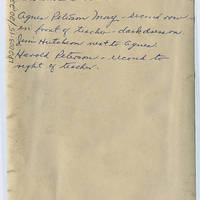 Agnes Peterson May - second row
in front of teacher - dark dress on
Jim Hutchson next to Agnes
Harold Peterson - second to
right of teacher.